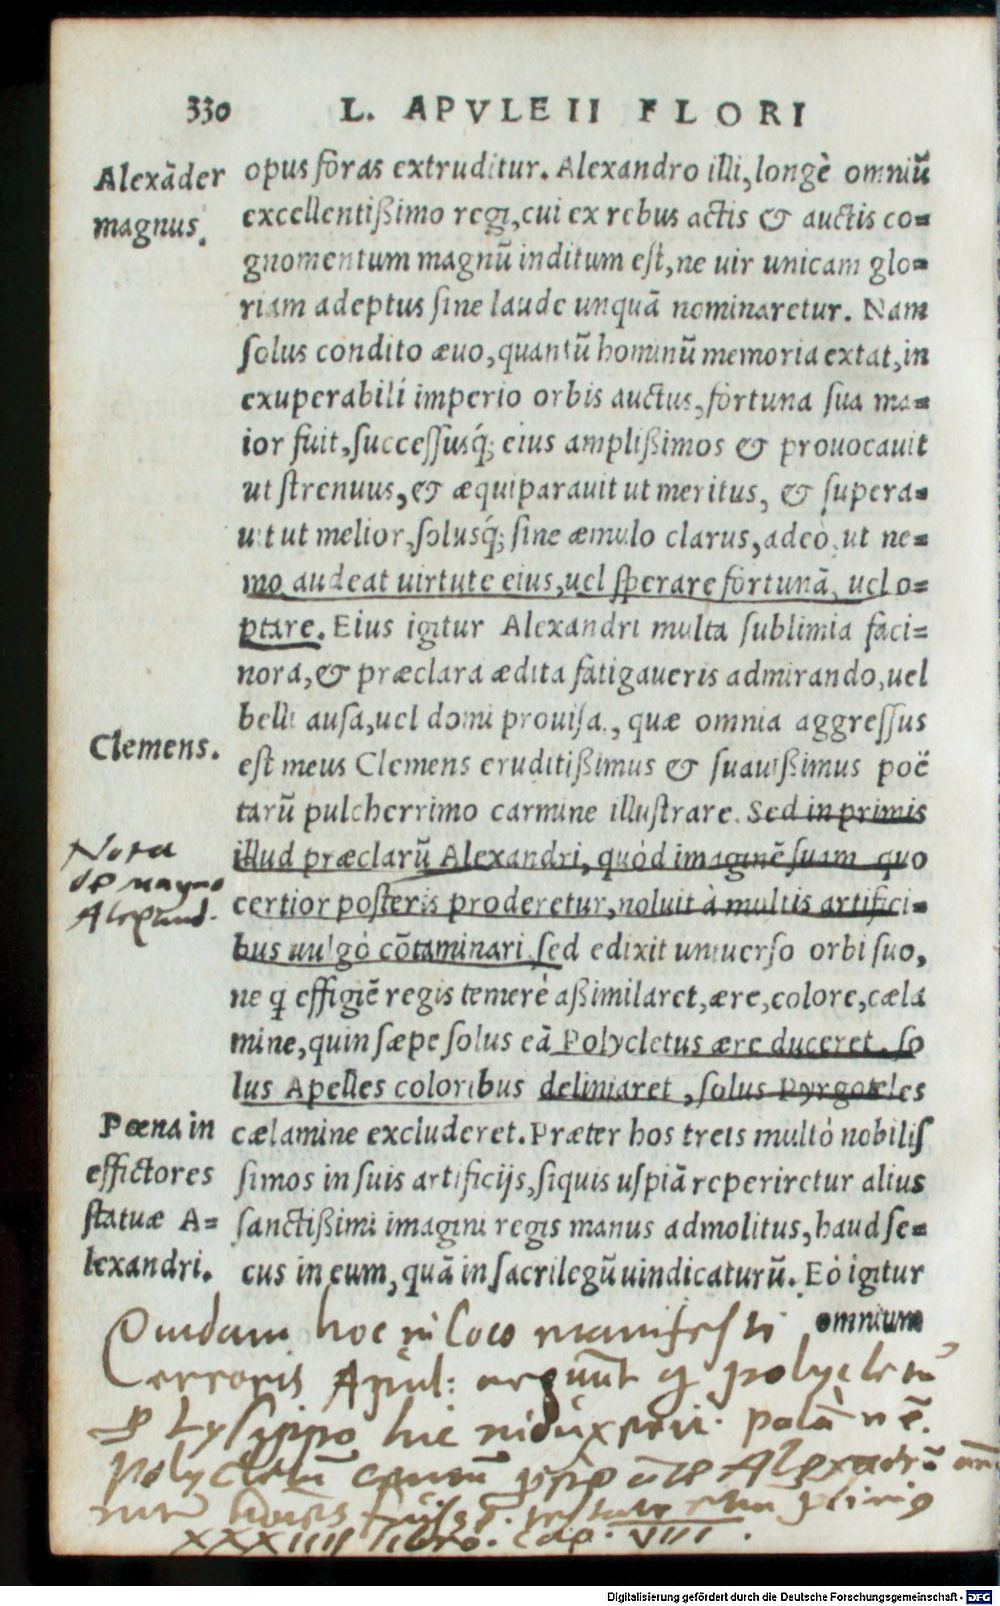 330 L. APVLEII FLORI
Alexāder
magnus.
opus foras extruditur. Alexandro illi, longè omniū
excellentißimo regi, cui ex rebus actis & auctis co=
gnomentum magnū inditum est, ne uir unicam glo=
riam adeptus sine laude unquā nominaretur. Nam
solus condito æuo, quantū hominū memoria extat, in
exuperabili imperio orbis auctus, fortuna sua ma=
ior fuit, successusq́; eius amplißimos & prouocauit
ut strenuus, & æquiparauit ut meritus, & supera=
uit ut melior, solusq́; sine æmulo clarus, adeò, ut ne=
mo audeat uirtute eius, uel sperare fortunā, uel o=
ptare. Eius igitur Alexandri multa sublimia faci=
nora, & præclara ædita fatigaueris admirando, uel
belli ausa, uel domi prouisa, quæ omnia aggressus
Clemens.
est meus Clemens eruditißimus & suauißimus poë
tarū pulcherrimo carmine illustrare. Sed in primis
Nota
de magno
Alexand.
illud præclarū Alexandri, quòd imaginē suam quo
certior posteris proderetur, noluit à multis artifici=
bus uulgò cōtaminari sed edixit uniuerso orbi suo,
ne q effigiē regis temerè aßimilaret, ære, colore, cæla
mine, quin sæpe solus eā Polycletus ære duceret, so
lus Apelles coloribus deliniaret, solus Pyrgoteles
Pœna in
effictores
statuæ A=
lexandri.
cælamine excluderet. Præter hos treis multò nobilis
simos in suis artificijs, siquis uspiā reperiretur alius
sanctißimi imagini regis manus admolitus, haud se=
cus in eum, quā in sacrilegū uindicaturū. Eò igitur
omnium
Quidam hoc in loco manifesti
erroris Apul: arguūt q polycletū
Lysippo hic palā
polycletū Alexadrū
plinio
XXXIIII libro. Cap. VIII.
Digitalisierung gefördert durch die Deutsche Forschungsgemeinschaft - DFG